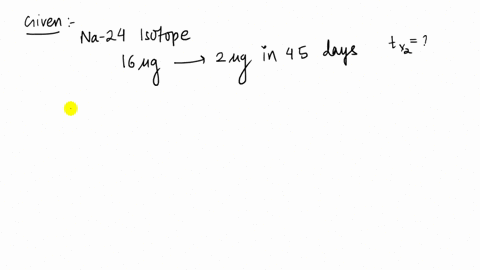 Given:-
Na-24 Isotope
16 μg → 2 μg in 45 days t₁/₂ = ?